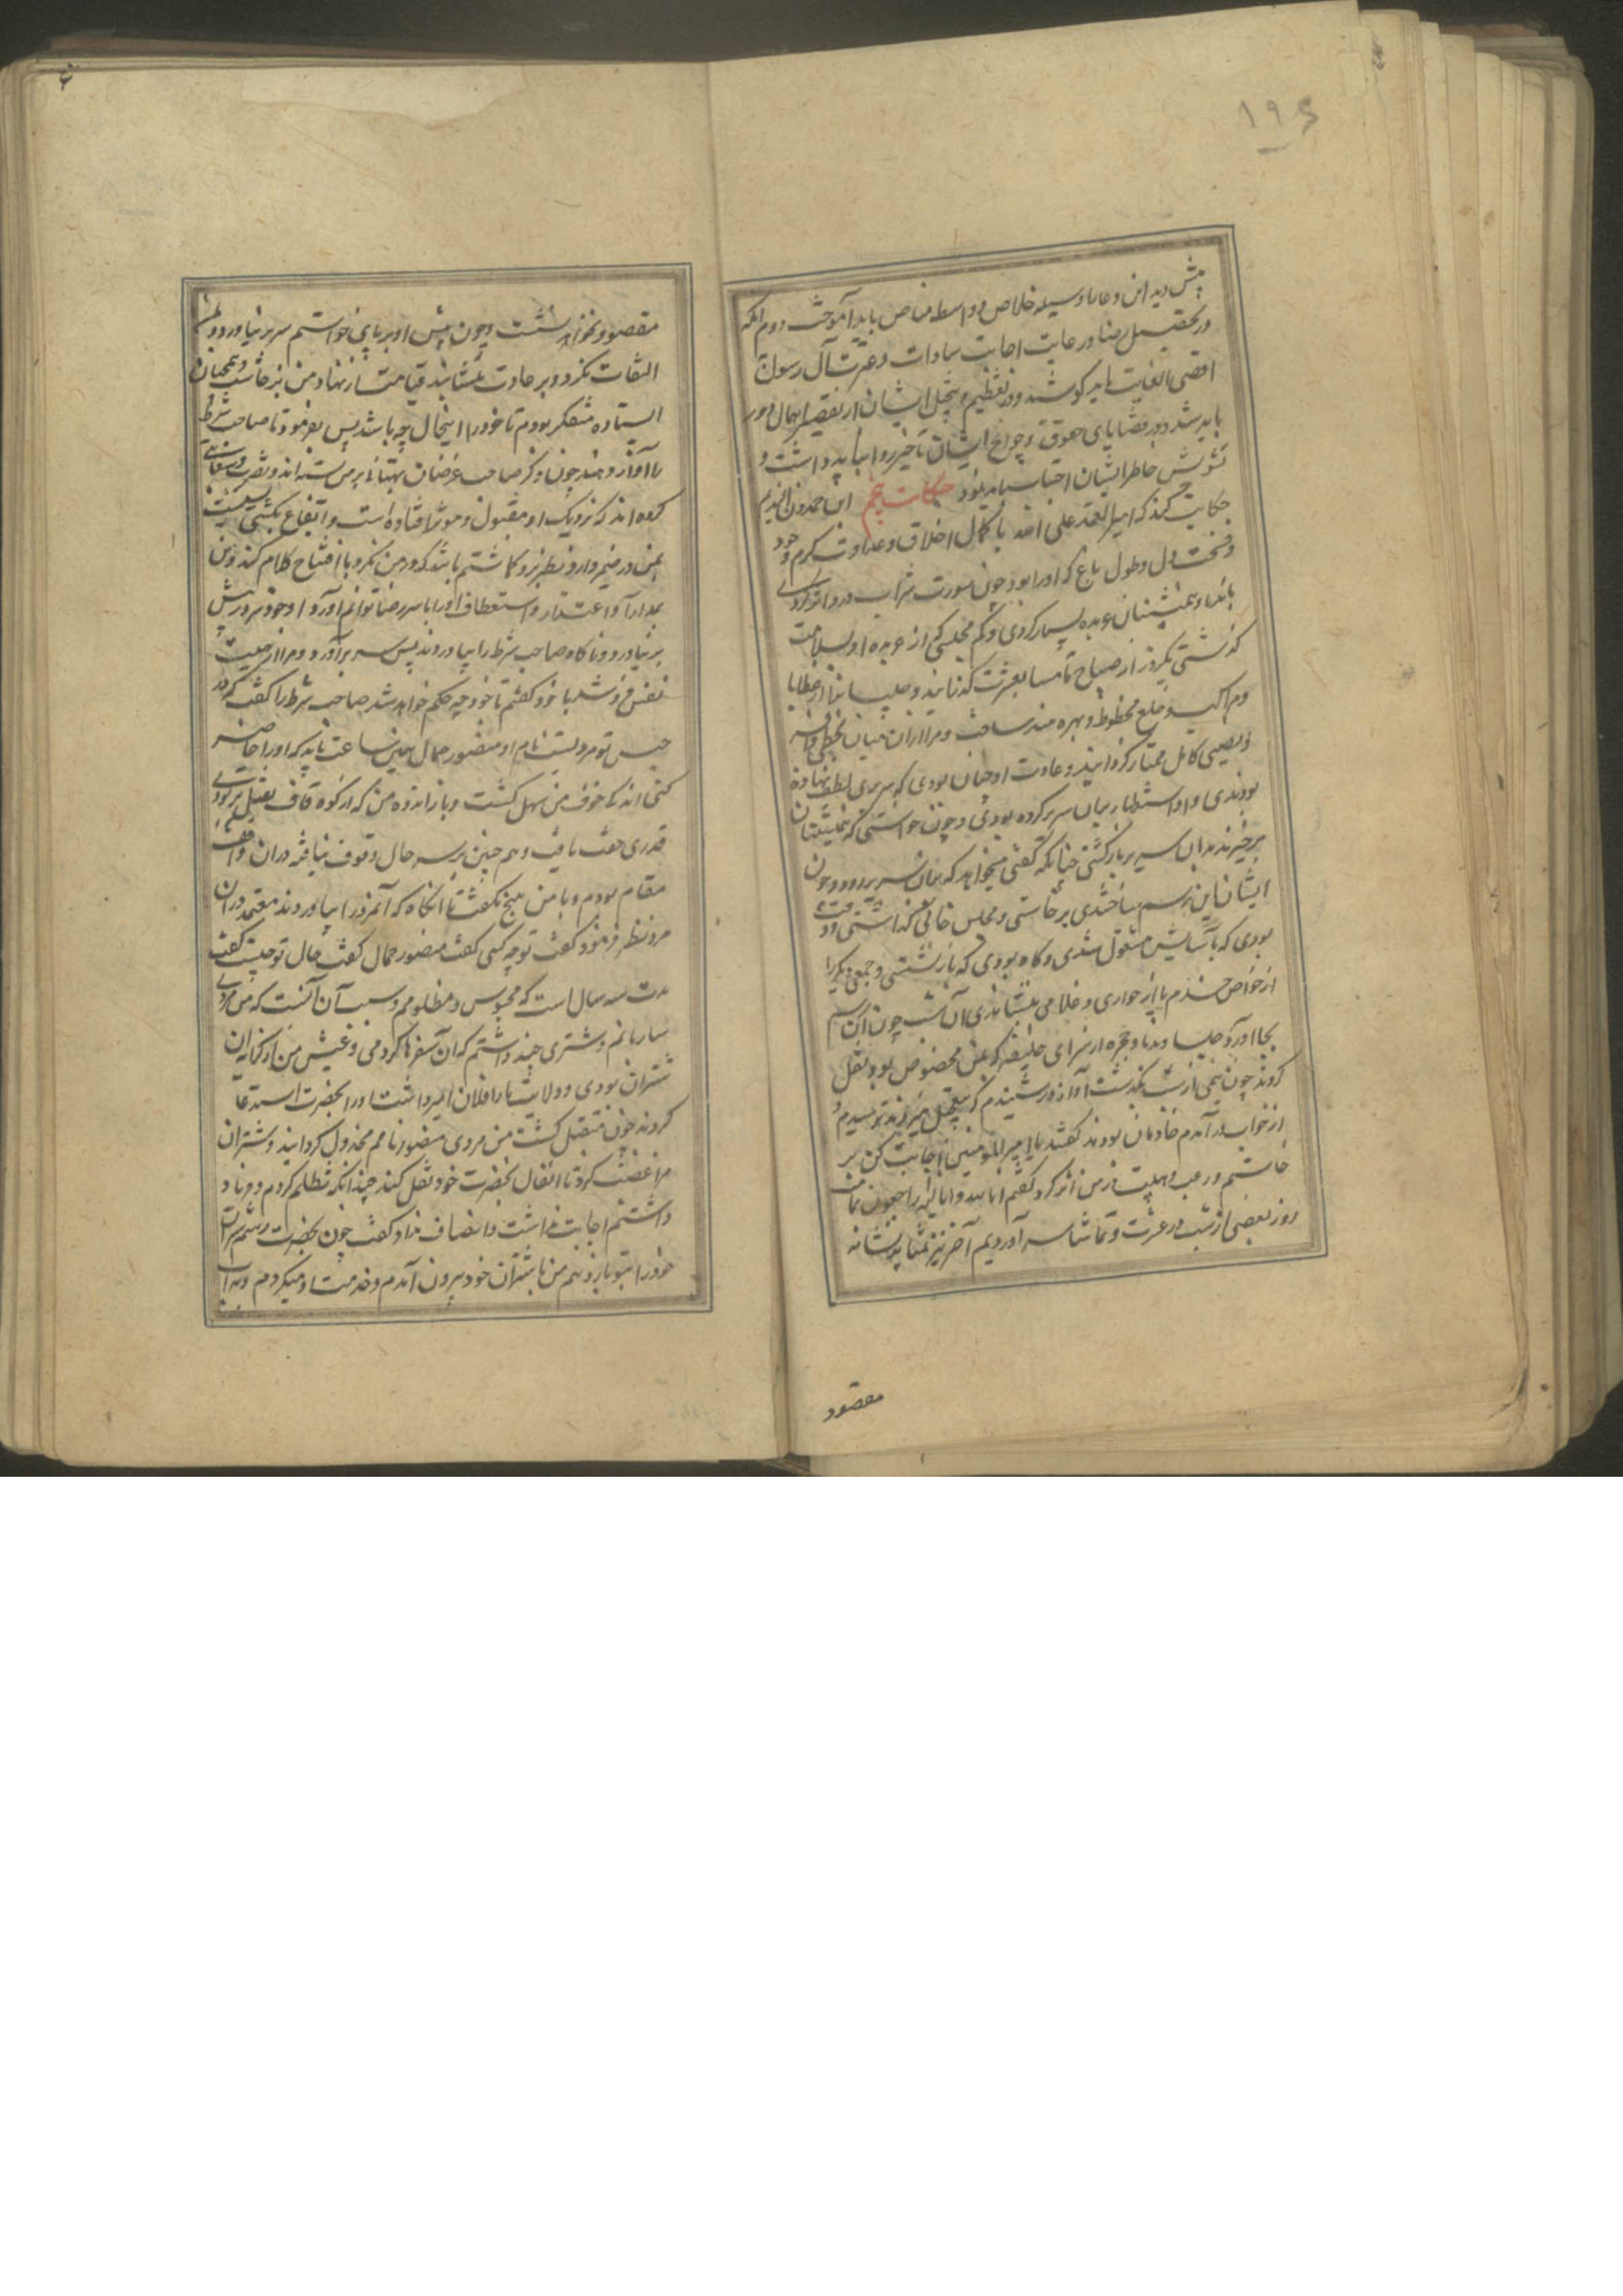 ۱۹۶
پیش دید این دعا وسیله خلاص و واسطه مناص باید آموخت دوم آنکه
در تحصیل رضا و رعایت اجابت سادات و عترت آل رسول
اقصی الغایت باید کوشید و در تعظیم و تبجیل ایشان از تقصیر و اهمال دور
باید شد و در قضایای حقوق و حوایج ایشان تاخیر روا نباید داشت و
تشویش خاطر ایشان اجتناب باید نمود حکایت پنجم ابن حمدون الندیم
حکایت کند که امیر المعتمد علی الله با کمال اخلاق و عادت کرم و جود
و فسحت دل و طول باع که او را بود چون سورت شراب در و اثر کردی
با ندما و همنشینان عربده بسیار کردی و کم مجلسی از عربده او بسلامت
گذشتی یک روز از صباح تا مسا بعشرت گذرانید و جلسا را از عطایا
و مراکب و خلع محظوظ و بهره مند ساخت و مرا از آن میان بحظی وافر
و نصیبی کامل ممتاز گردانید و عادت او چنان بودی که سریری لطیف نهاده
بودندی و او استظهار بدان سریر کرده بودی و چون خواستی که همنشینان
برخیزند بدان سریر بازگشتی چنانکه گفتی میخواهد که بدان سریر رود و چون
ایشان این رسم ساختندی برخاستی و مجلس خالی گذاشتی و وقت
بودی که بآسایش مشغول شدی و گاه بودی که بازنشستی و جمعی دیگر را
از خواص خدم یا از جواری و غلامی بنشاندی آن شب چون این رسم
بجا آورد جلسا و ندما و حجره از سرای خلیفه که بمن مخصوص بود نقل
کردند چون نیمی از شب بگذشت آواز در شنیدم که بتعجیل میزدند ترسیدم و
از خواب درآمدم خادمان بودند گفتند یا امیر المومنین اجابت کن بر
خاستم و رعب و هیبت در من اثر کرد گفتم انا لله و انا الیه راجعون تمامت
روز بعضی از شب در عشرت و تماشا بسر آوردیم آخر نیز
مقصود
مقصود نخواهد نشست و چون پیش او بر پای خواستم سر بر نیاورد و بمن
التفات نکرد و بر عادت ننشانید قیامت از نهاد من برخاست و همچنان
ایستاده متفکر بودم تا خود را اینحال چه باشد پس بفرمود تا صاحب شرط
را آواز دهند چون ذکر صاحب غرضان بهتانی بر من بسته اند و بتصریب و سعایتی
کرده اند که نزدیک او مقبول و موثر افتاده است و ایقاع بکشتی نیست
بمن در ضمیر دارد و نظر نزد گماشتم باشد که در من نگرد یا افتتاح کلام کند و من
بمدارا و اعتذار و استعطاف او را با سر رضا توانم آورد او خود سر در پیش
بر نیاورد و ناگاه صاحب شرط را بیاوردند پس سر برآورد و مرا از هیبت
نفس فروشد با خود گفتم تا خود چه حکم خواهد شد صاحب شرط را گفت که در
حبس تو مردیست نام او منصور جمال همین ساعت باید که او را حاضر
کنی اندکی خوف من سهل گشت و بار اندوه من که از کوه قاف ثقیل تر بودی
قدری خفت یافت و هم چنین بر سر حال وقوف نیافته در آن واقف
مقام بودم و با من هیچ نگفت تا آنگاه که آنمرد را بیاوردند معتمد در آن
مرد نظر فرمود گفت تو چه کسی گفت منصور جمال گفت حال تو چیست گفت
مدت سه سال است که محبوس و مظلومم و سبب آن آنست که من مردی
ساربانم و شتری چند داشتم که آن سفرها کردمی و عیش من از کرای آن
شتران بودی و ولایت مارا فلان امیر داشت او را بحضرت استدعا
کردند چون مستقبل گشت من مردی منصور نامم مخذول گردانید و شتران
مرا غصب کرد تا اثقال بحضرت خود نقل کند چندانکه تظلم کردم و فریاد
داشتم اجابت نداشت و انصاف نداد و گفت چون بحضرت رسم شتران
خود را بتو باز دهم من با شتران خود بیرون آمدم و خدمت او میکردم و